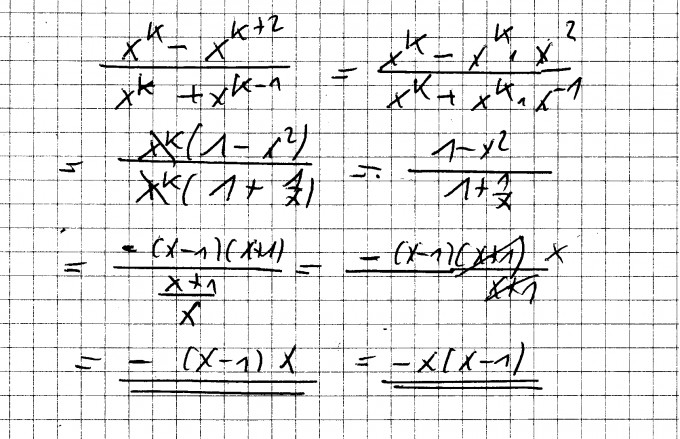 (x^k - x^(k+2)) / (x^k + x^(k-1)) = (x^k - x^k · x^2) / (x^k + x^k · x^-1)
= x^k(1 - x^2) / x^k(1 + 1/x) = (1 - x^2) / (1 + 1/x)
= -(x-1)(x+1) / ((x+1)/x) = -(x-1)(x+1) x / (x+1)
= - (x-1) x = -x(x-1)